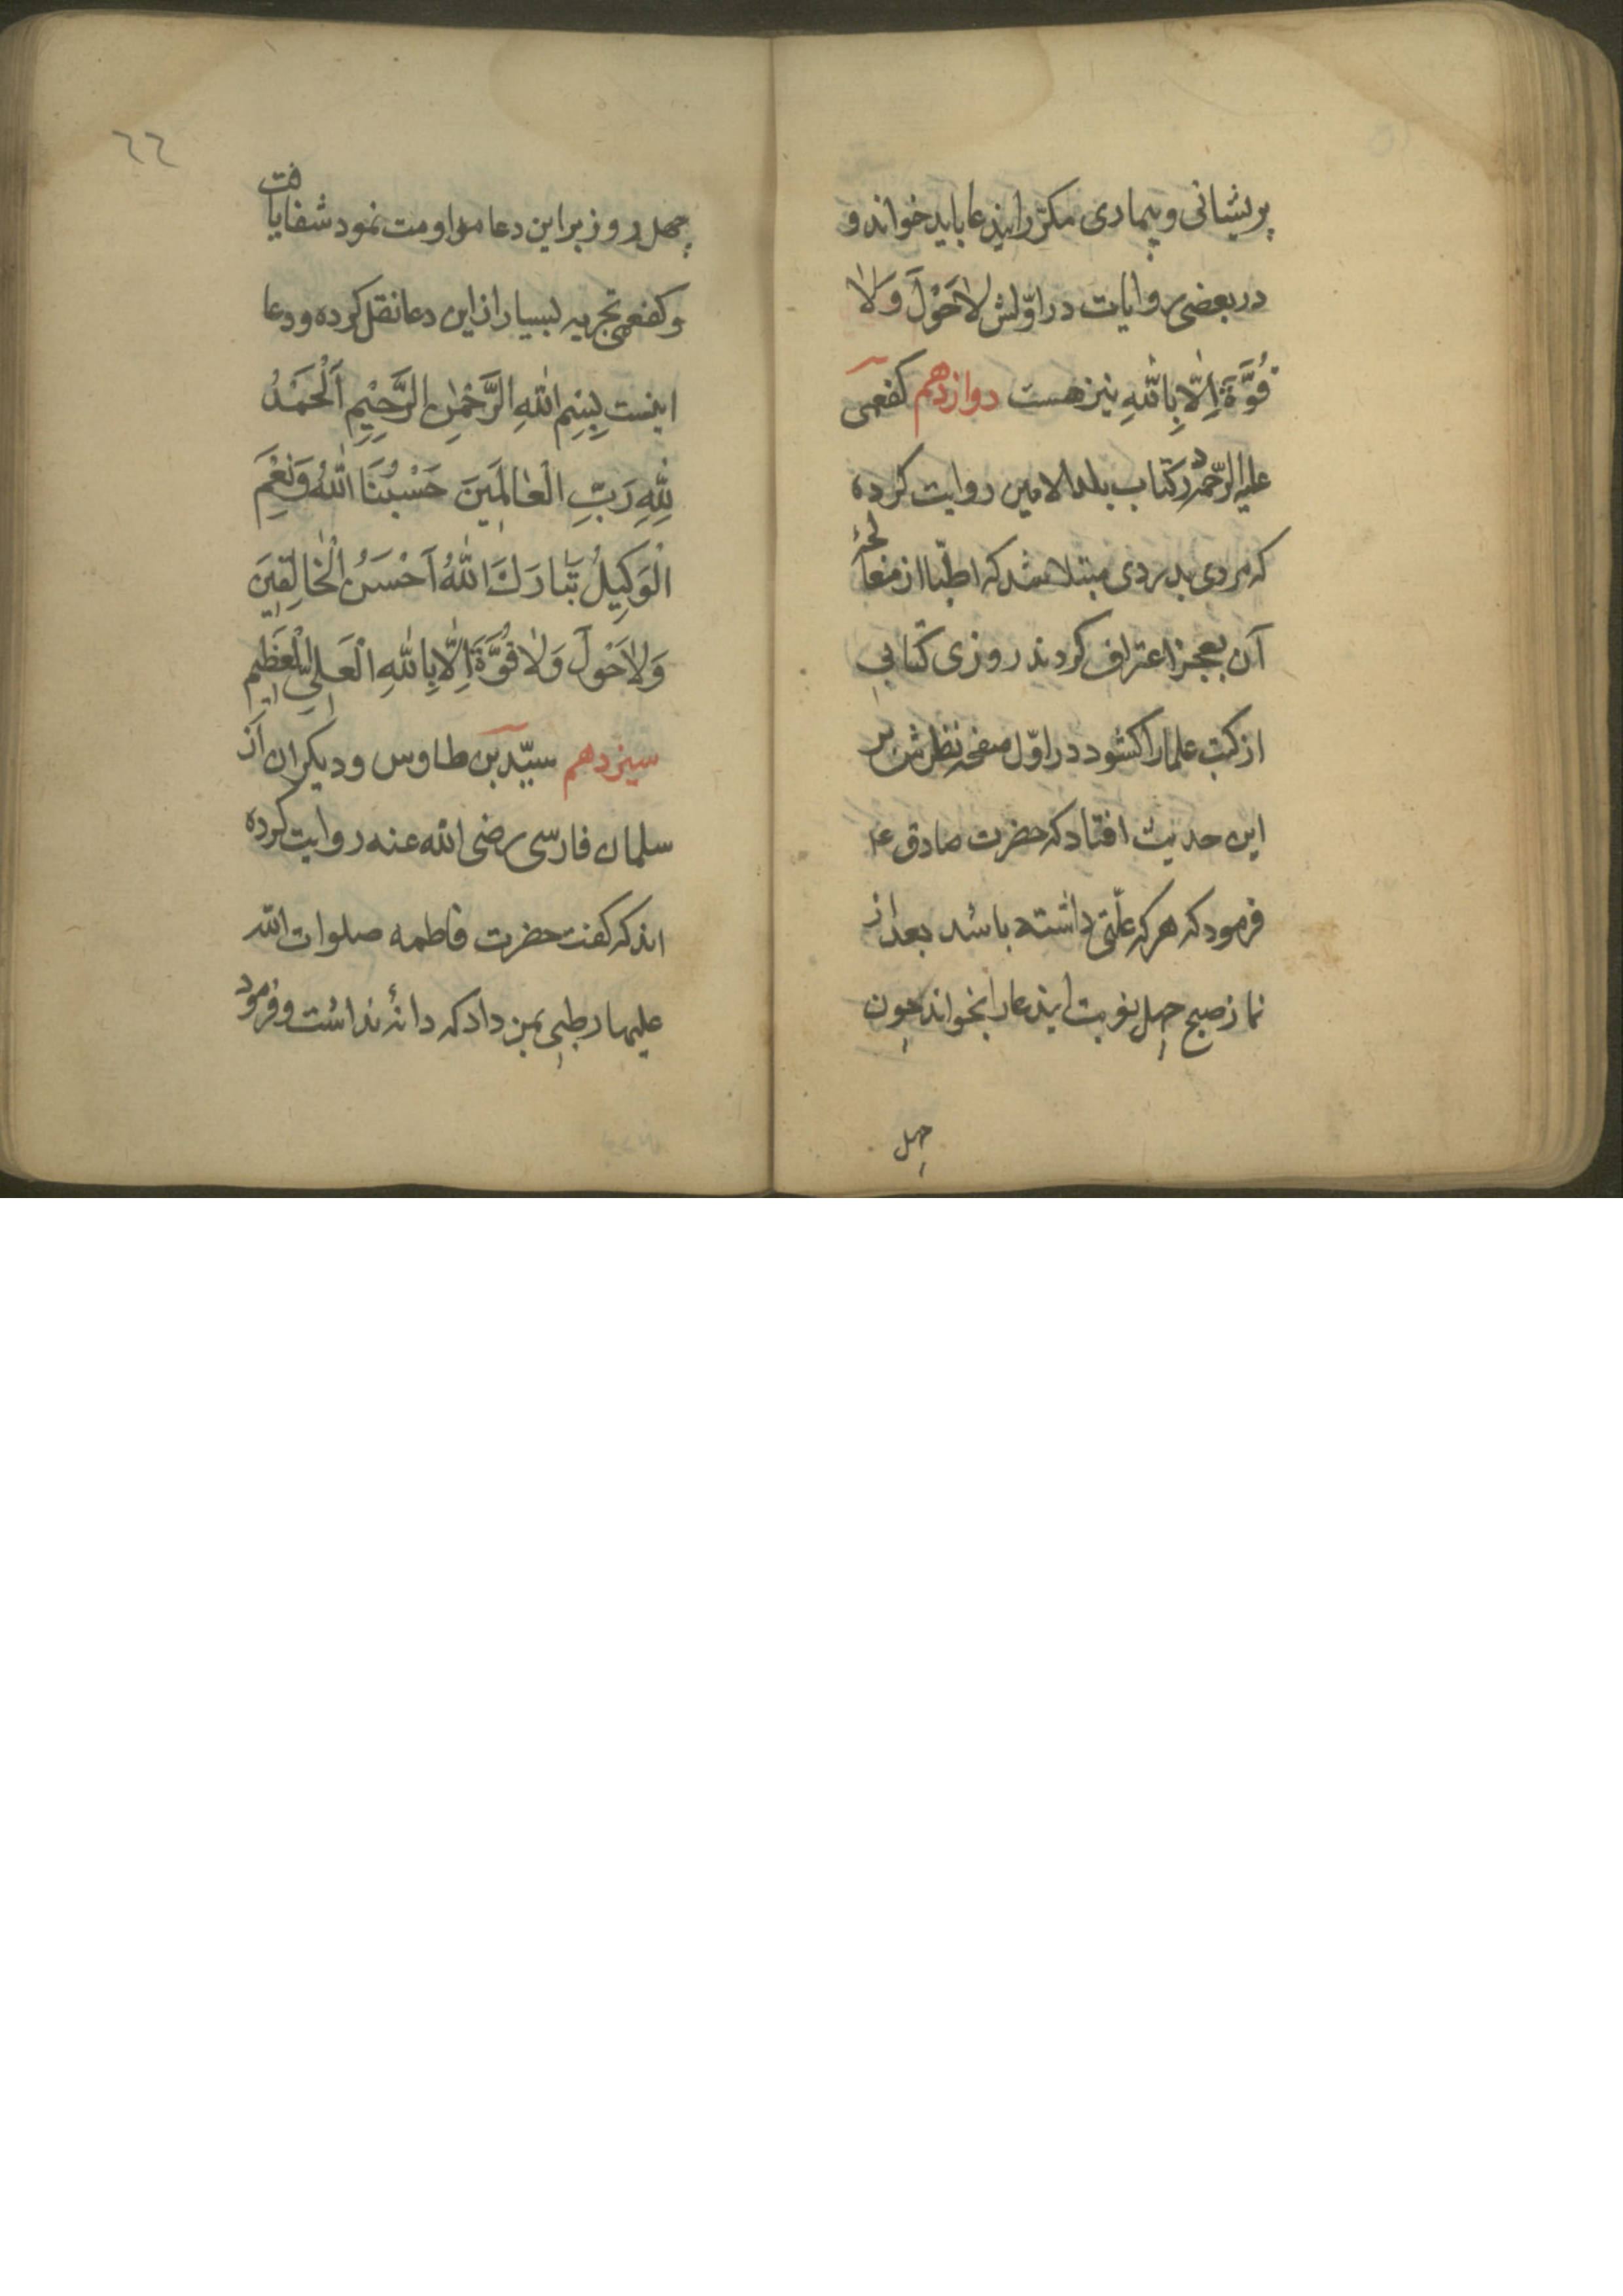 پریشانی و بیماری مکرّر اینذعا باید خواند و
در بعضی روایات در اوّلش لاٰحَوْلَ وَلاٰ
قُوَّةَ اِلّا بِاللّٰهِ نیز هست دوازدهم کفعمی
علیه الرّحمه در کتاب بلد الامین روایت کرده
که مردی بدردی مبتلا شد که اطبّا از معالجهٔ
آن بعجز اعتراف کردند روزی کتابی
از کتب علما را کشود در اوّل صفحه نظرش بر
این حدیث افتاد که حضرت صادق ع
فرمود که هر که علّتی داشته باشد بعد از
نماز صبح چهل نوبت ایندعا را بخواند چون
چهل
٦٦
چهل روز بر این دعا مداومت نمود شفا یافت
و کفعمی تجربه بسیار از این دعا نقل کرده و دعا
اینست بِسْمِ اللّٰهِ الرَّحْمٰنِ الرَّحِیْمِ اَلْحَمْدُ
لِلّٰهِ رَبِّ الْعٰالَمِینَ حَسْبُنَا اللّٰهُ وَنِعْمَ
الْوَکِیلُ تَبٰارَكَ اللّٰهُ اَحْسَنُ الْخٰالِقِینَ
وَلاٰحَوْلَ وَلاٰ قُوَّةَ اِلّٰا بِاللّٰهِ الْعَلِیِّ الْعَظِیمِ
سیزدهم سیّد بن طاوس و دیکران از
سلمان فارسی رضی الله عنه روایت کرده
اند که کفت حضرت فاطمه صلوات الله
علیها رطبی بمن داد که دانهٔ نداشت و فرمود